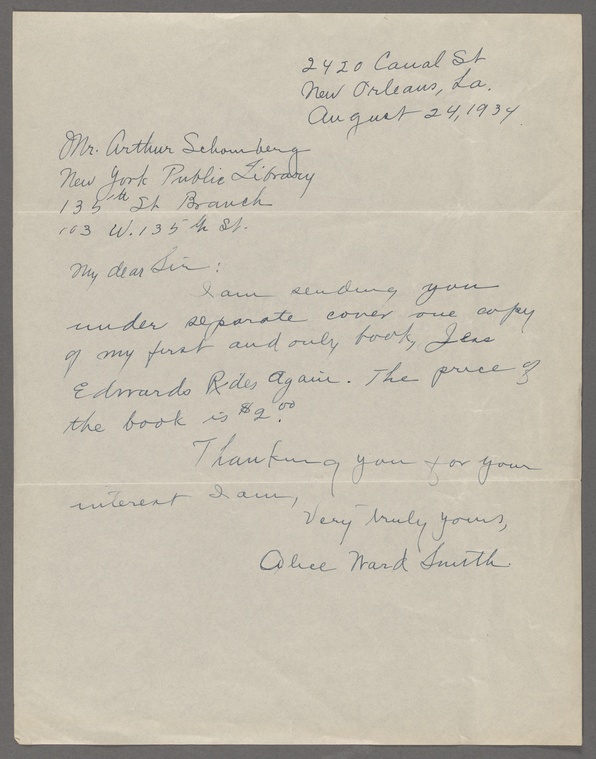 2420 Canal St
New Orleans, La.
August 24, 1934.
Mr. Arthur Schomberg
New York Public Library
135th St Branch
103 W. 135th St.
My dear Sir:
I am sending you
under separate cover one copy
of my first and only book, Jess
Edwards Rides Again. The price of
the book is $2.00
Thanking you for your
interest I am,
Very truly yours,
Alice Ward Smith.